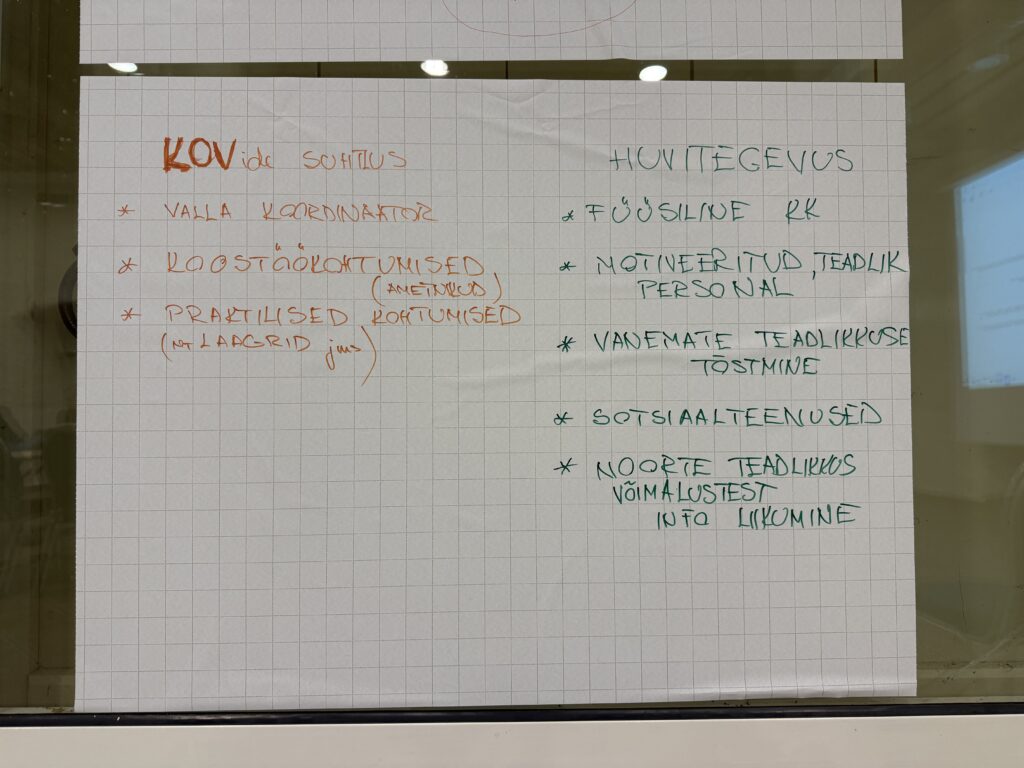 KOVide SUHTLUS
* VALLA KOORDINAATOR
* KOOSTÖÖKOHTUMISED
(AMETNIKUD)
* PRAKTILISED KOHTUMISED
(NT LAAGRID jms)
HUVITEGEVUS
* FÜÜSILINE KK
* MOTIVEERITUD, TEADLIK
PERSONAL
* VANEMATE TEADLIKKUSE
TÕSTMINE
* SOTSIAALTEENUSED
* NOORTE TEADLIKKUS
VÕIMALUSTEST
INFO LIIKUMINE